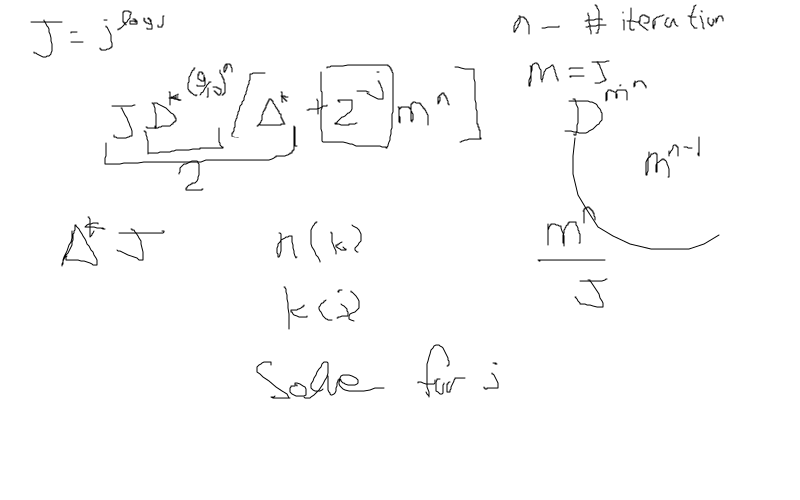 J = j^log j
n - # iteration
m = J
J D^k^(9/10)^n [ Δ^k + 2^-j m^n ]
2
D^m^n
m^n-1
Δ^k J
n(k)
m^n
J
k(j)
Solve for j